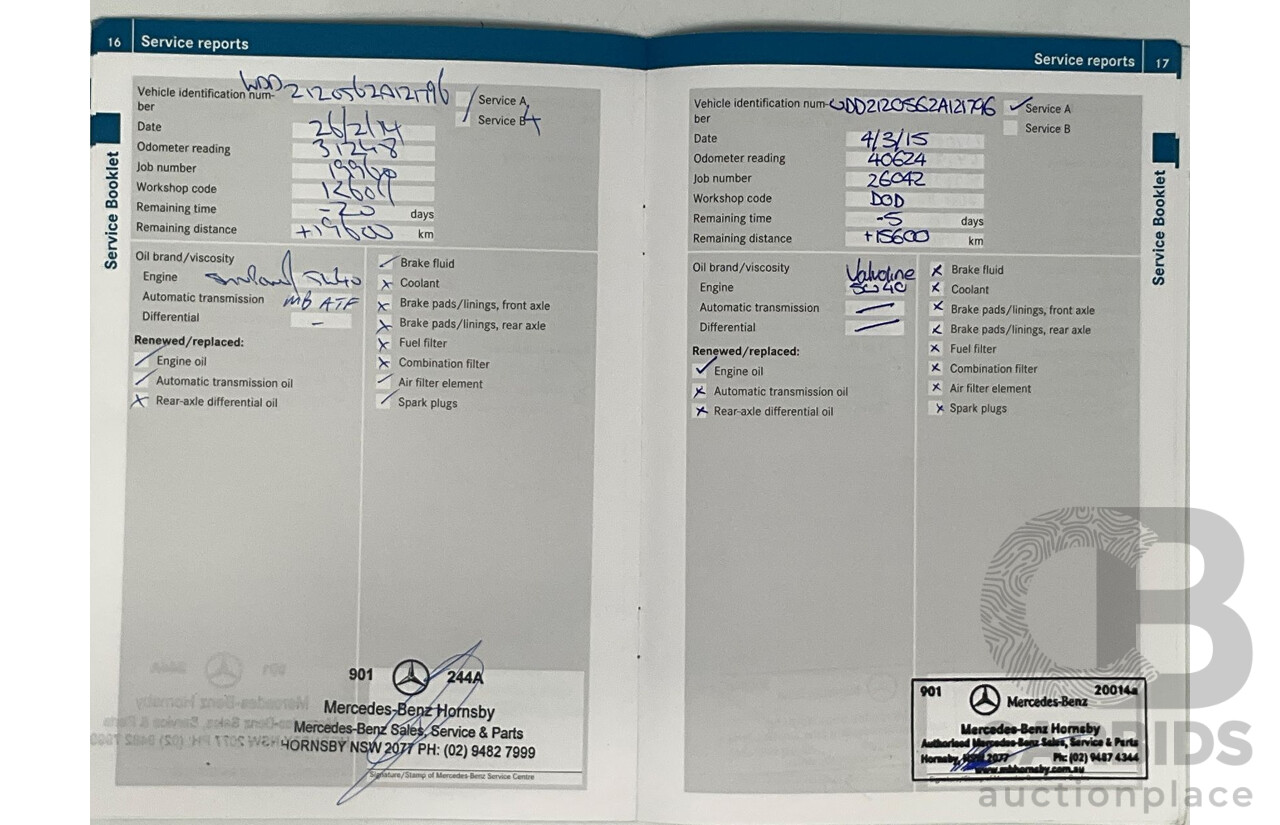 16 Service reports
Vehicle identification num- WDD2120562A121796
ber
Service A
Service B4
Date 26/2/14
Odometer reading 31248
Job number 19960
Workshop code 12601
Remaining time -20 days
Remaining distance +19600 km
Oil brand/viscosity
Engine 5W40
Automatic transmission MB ATF
Differential –
Renewed/replaced:
Engine oil
Automatic transmission oil
Rear-axle differential oil
Brake fluid
Coolant
Brake pads/linings, front axle
Brake pads/linings, rear axle
Fuel filter
Combination filter
Air filter element
Spark plugs
901 244A
Mercedes-Benz Hornsby
Mercedes-Benz Sales, Service & Parts
HORNSBY NSW 2077 PH: (02) 9482 7999
Signature/Stamp of Mercedes-Benz Service Centre
Service Booklet
Service reports 17
Vehicle identification num- WDD2120562A121796
ber
Service A
Service B
Date 4/3/15
Odometer reading 40624
Job number 26042
Workshop code DOD
Remaining time -5 days
Remaining distance +15600 km
Oil brand/viscosity Valvoline
Engine 5W40
Automatic transmission —
Differential —
Renewed/replaced:
Engine oil
Automatic transmission oil
Rear-axle differential oil
Brake fluid
Coolant
Brake pads/linings, front axle
Brake pads/linings, rear axle
Fuel filter
Combination filter
Air filter element
Spark plugs
901 20014a
Mercedes-Benz
Mercedes-Benz Hornsby
Authorised Mercedes-Benz Sales, Service & Parts
Hornsby, NSW 2077 Ph: (02) 9487 4344
www.mbhornsby.com.au
Service Booklet
CB
CARBIDS
auctionplace